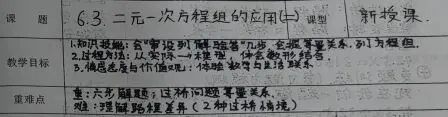 课题 6.3.二元一次方程组的应用(二) 课型 新授课.
教学目标
1.知识技能:会"审设列解验答"几步 会找等量关系.列方程组.
2.过程方法:从实际→模型 体会数形结合.
3.情感态度与价值观:体验数学与生活联系.
重难点
重:六步解题;过桥问题等量关系.
难:理解路程差异(2种过桥情境)